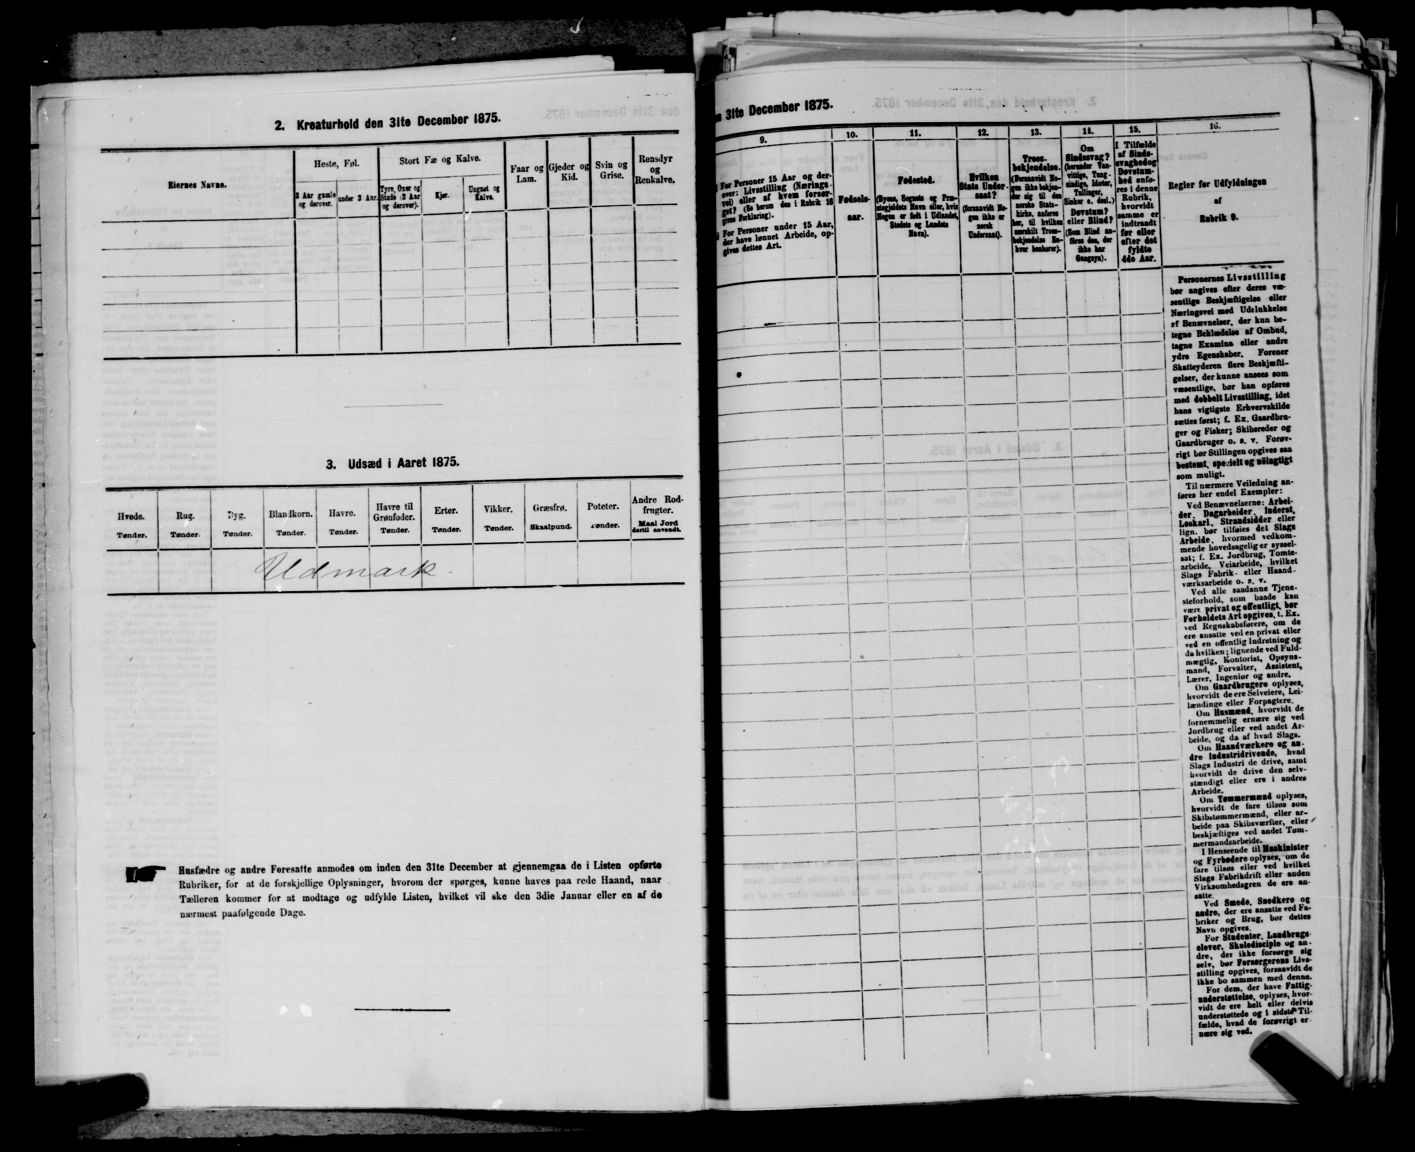 2. Kreaturhold den 31te December 1875.
Eiernes Navne.
Heste, Føl.
3 Aar gamle og derover.
under 3 Aar.
Stort Fæ og Kalve.
Tyre, Oxer og Stude (2 Aar og derover).
Kjør.
Ungnøt og Kalve.
Faar og Lam.
Gjeder og Kid.
Svin og Grise.
Rensdyr og Renkalve.
3. Udsæd i Aaret 1875.
Hvede. Rug. Byg. Blandkorn. Havre. Havre til Grønfoder. Erter. Vikker. Græsfrø. Poteter. Andre Rodfrugter.
Tønder. Tønder. Tønder. Tønder. Tønder. Tønder. Tønder. Tønder. Skaalpund. Tønder. Maal Jord dertil anvendt.
Udmark.
Husfædre og andre Foresatte anmodes om inden den 31te December at gjennemgaa de i Listen opførte
Rubriker, for at de forskjellige Oplysninger, hvorom der spørges, kunne haves paa rede Haand, naar
Tælleren kommer for at modtage og udfylde Listen, hvilket vil ske den 3die Januar eller en af de
nærmest paafølgende Dage.
31te December 1875.
9.
For Personer 15 Aar og der-
over: Livsstilling (Nærings-
vei) eller af hvem forsør-
get? (Se herom den i Rubrik 16
givne Forklaring).
For Personer under 15 Aar,
der have lønnet Arbeide, op-
gives dettes Art.
10.
Fødsels-
aar.
11.
Fødested.
(Byens, Sognets og Præ-
stegjeldets Navn eller, hvis
Nogen er født i Udlandet,
Stedets og Landets
Navn).
12.
Hvilken
Stats Under-
saat?
(forsaavidt No-
gen ikke er
norsk
Undersaat).
13.
Troes-
bekjendelse.
(Forsaavidt No-
gen ikke bekjen-
der sig til den
norske Stats-
kirke, anføres
her, til hvilken
norskilt Troes-
bekjendelse En-
hver henhører).
14.
Om
Sindssvag?
(herunder Van-
vittige, Tung-
sindige, Idioter,
Tullinger,
Sinker o. desl.)
Døvstum?
eller Blind?
(Som Blind an-
føres den, der
ikke har
Gangsyn).
15.
I Tilfælde
af Sinds-
svaghed og
Døvstum-
hed anfø-
res i denne
Rubrik,
hvorvidt
samme er
indtraadt
før eller
efter det
fyldte
4de Aar.
16.
Regler for Udfyldningen
af
Rubrik 9.
Personernes Livsstilling
bør angives efter deres væ-
sentlige Beskjæftigelse eller
Næringsvei med Udelukkelse
af Benævnelser, der kun be-
tegne Beklædelse af Ombud,
tagne Examina eller andre
ydre Egenskaber. Forener
Skatteyderen flere Beskjæfti-
gelser, der kunne ansees som
væsentlige, bør han opføres
med dobbelt Livsstilling, idet
hans vigtigste Erhvervskilde
sættes først; f. Ex. Gaardbru-
ger og Fisker; Skibsreder og
Gaardbruger o. s. v. Forøv-
rigt bør Stillingen opgives saa
bestemt, specielt og nöiagtigt
som muligt.
Til nærmere Veiledning an-
føres her endel Exempler:
Ved Benævnelserne: Arbei-
der, Dagarbeider, Inderst,
Løskarl, Strandsidder eller
lign. bør tilføies det Slags
Arbeide, hvormed vedkom-
mende hovedsagelig er syssel-
sat; f. Ex. Jordbrug, Tomte-
arbeide, Veiarbeide, hvilket
Slags Fabrik- eller Haand-
værksarbeide o. s. v.
Ved alle saadanne Tjene-
steforhold, som baade kan
være privat og offentligt, bør
Forholdets Art opgives, t. Ex.
ved Regnskabsførere, om de
ere ansatte ved en privat eller
ved en offentlig Indretning og
da hvilken; lignende ved Fuld-
mægtig, Kontorist, Opsyns-
mand, Forvalter, Assistent,
Lærer, Ingeniør og andre.
Om Gaardbrugere oplyses,
hvorvidt de ere Selveiere, Lei-
lændinge eller Forpagtere.
Om Husmænd, hvorvidt de
fornemmelig ernære sig ved
Jordbrug eller ved andet Ar-
beide, og da af hvad Slags.
Om Haandværkere og an-
dre Industridrivende, hvad
Slags Industri de drive, samt
hvorvidt de drive den selv-
stændigt eller ere i andres
Arbeide.
Om Tømmermænd oplyses,
hvorvidt de fare tilsøs som
Skibstømmermænd, eller ar-
beide paa Skibsværfter, eller
beskjæftiges ved andet Tøm-
mermandsarbeide.
I Henseende til Maskinister
og Fyrbødere oplyses, om de
fare tilsøs eller ved hvilket
Slags Fabrikdrift eller anden
Virksomhedsgren de ere an-
satte.
Ved Smede, Snedkere og
andre, der ere ansatte ved Fa-
briker og Brug, bør dettes
Navn opgives.
For Studenter, Landbrugs-
elever, Skoledisciple og an-
dre, der ikke forsørge sig
selv, bør Forsørgerens Livs-
stilling opgives, forsaavidt de
ikke bo sammen med denne.
For dem, der have Fattig-
understøttelse, oplyses, hvor-
vidt de ere helt eller delvis
understøttede og i sidste Til-
fælde, hvad de forøvrigt er-
nære sig ved.